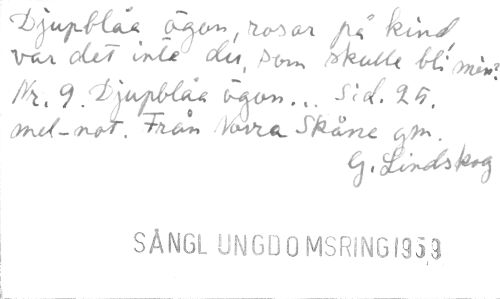 Djupblåa ögon, rosor på kind
var det inte du, som skulle bli min?
Nr. 9. Djupblåa ögon... Sid. 25.
mel-not. Från Norra Skåne gm.
G. Lindskog
SÅNGL UNGDOMSRING 1959